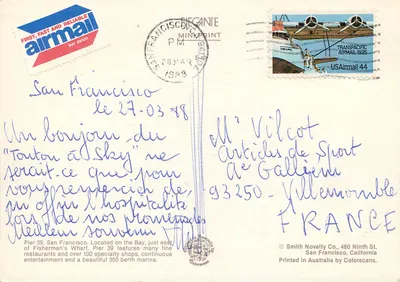 FIRST, FAST AND RELIABLE
airmail
par avion
SAN FRANCISCO,
PM
1988
ELEGANTE
MINIPRINT
TRANSPACIFIC
AIRMAIL 1935
USAirmail 44
San Francisco
le 27-03 88
Un bonjour du
"Tonton à Sky" ne
serait-ce que pour
vous remercier de
m offrir l'hospitalité
lors de nos promenades
Meilleur souvenir
Mr Vilcot
Articles de Sport
Ae Gallieni
93250 - Villemomble
FRANCE
Pier 39, San Francisco. Located on the Bay, just east
of Fisherman's Wharf. Pier 39 features many fine
restaurants and over 100 specialty shops, continuous
entertainment and a beautiful 350 berth marina.
© Smith Novelty Co., 460 Ninth St.
San Francisco, California
Printed in Australia by Colorscans.